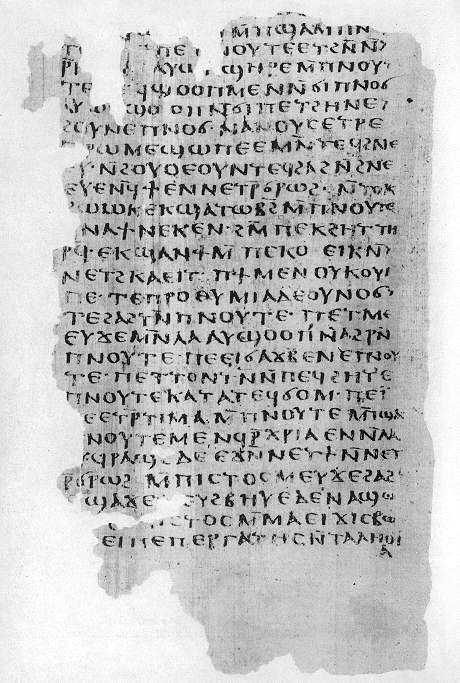 ⲙ̄ⲡϣⲁ ⲙⲡⲛ
ⲡⲉⲧ ⲛⲟⲩⲧⲉ ⲉⲧϩⲛ̄ⲛ̄
ⲣⲱ ⲁⲩⲱ ⲡϣⲏⲣⲉ ⲙⲡⲛⲟⲩ
ⲧⲉ ϥϣⲟⲟⲡ ⲙⲉⲛ ⲛ̄ϭⲓ ⲡⲛⲟϭ
ⲁⲩⲱ ϥϣⲟⲟⲡ ⲛ̄ϭⲓ ⲡⲉⲧϩⲏⲛ ⲉ
ϩⲟⲩⲛ ⲉⲡⲛⲟϭ· ⲛⲁⲛⲟⲩⲥ ⲉⲧⲣⲉ
ⲡⲣⲱⲙⲉ ϣⲱⲡⲉ ⲉⲙⲛ̄ⲧⲉϥ ϩⲛⲉ
ⲟⲩ ⲛ̄ϩⲟⲩⲟ ⲉⲟⲩⲛⲧⲉϥ ϩⲁϩ ⲛ̄ϩⲛⲉ
ⲉⲩⲉ ⲛϥϯ ⲉⲛ ⲛⲉⲧⲣϭⲣⲱϩ· ⲛ̄ⲧⲟⲕ
ϩⲱⲱⲕ ⲉⲕϣⲁⲧⲱⲃϩ ⲙ̄ⲡⲛⲟⲩⲧⲉ
ϥⲛⲁϯ ⲛⲉⲕ ⲉⲛ· ϩⲙ̄ ⲡⲉⲕϩⲏⲧ ⲧⲏ
ⲣϥ· ⲉⲕϣⲁⲛϯ ⲙ̄ⲡⲉⲕⲟⲉⲓⲕ ⲛ̄
ⲛⲉⲧϩⲕⲁⲉⲓⲧ· ⲡϯ ⲙⲉⲛ ⲟⲩⲕⲟⲩⲓ
ⲡⲉ· ⲧⲉⲡⲣⲟⲑⲩⲙⲓⲁ ⲇⲉ ⲟⲩⲛⲟϭ
ⲧⲉ ϩⲁⲧⲛ̄ ⲡⲛⲟⲩⲧⲉ· ⲡⲉⲧⲙⲉ
ⲉⲩⲉ ϫⲉ ⲙⲛ ⲗⲁⲁⲩ ϣⲟⲟⲡ ⲛ̄ⲛⲁϩⲣⲛ̄
ⲡⲛⲟⲩⲧⲉ ⲡⲉⲉⲓ ϭⲁϫⲃ ⲉⲛ ⲉⲡⲛⲟⲩ
ⲧⲉ· ⲡⲉⲧⲧⲟⲛⲧⲛ̄ ⲙ̄ⲡⲉϥϩⲏⲧ ⲉ
ⲡⲛⲟⲩⲧⲉ ⲕⲁⲧⲁ ⲧⲉϥϭⲟⲙ· ⲡⲉⲓ̈
ⲡⲉⲧⲣⲧⲓⲙⲁ ⲙ̄ⲡⲛⲟⲩⲧⲉ ⲙ̄ⲡϣⲁ
ⲡⲛⲟⲩⲧⲉ ⲙⲉⲛ ϥⲣ̄ⲭⲣⲓⲁ ⲉⲛ ⲛⲗⲁ
ϥⲣⲁϣⲉ ⲇⲉ ⲉϫⲛ ⲛⲉⲧϯ ⲛ̄ⲛⲉⲧ
ⲣϭⲣⲱϩ· ⲙ̄ⲡⲓⲥⲧⲟⲥ ⲙⲉⲩϫⲉ ϩⲁϩ
ⲛϣⲁϫⲉ ⲛⲉⲩϩⲃⲏⲩⲉ ⲇⲉ ⲛⲁϣⲱ
ⲡⲓⲥⲧⲟⲥ ⲙ̄ⲙⲁⲉⲓϫⲓⲥⲃⲱ
ⲡⲉⲓ ⲡⲉ ⲡⲉⲣⲅⲁⲧⲏⲥ ⲛ̄ⲧⲁⲗⲏⲑⲓ
ⲁ